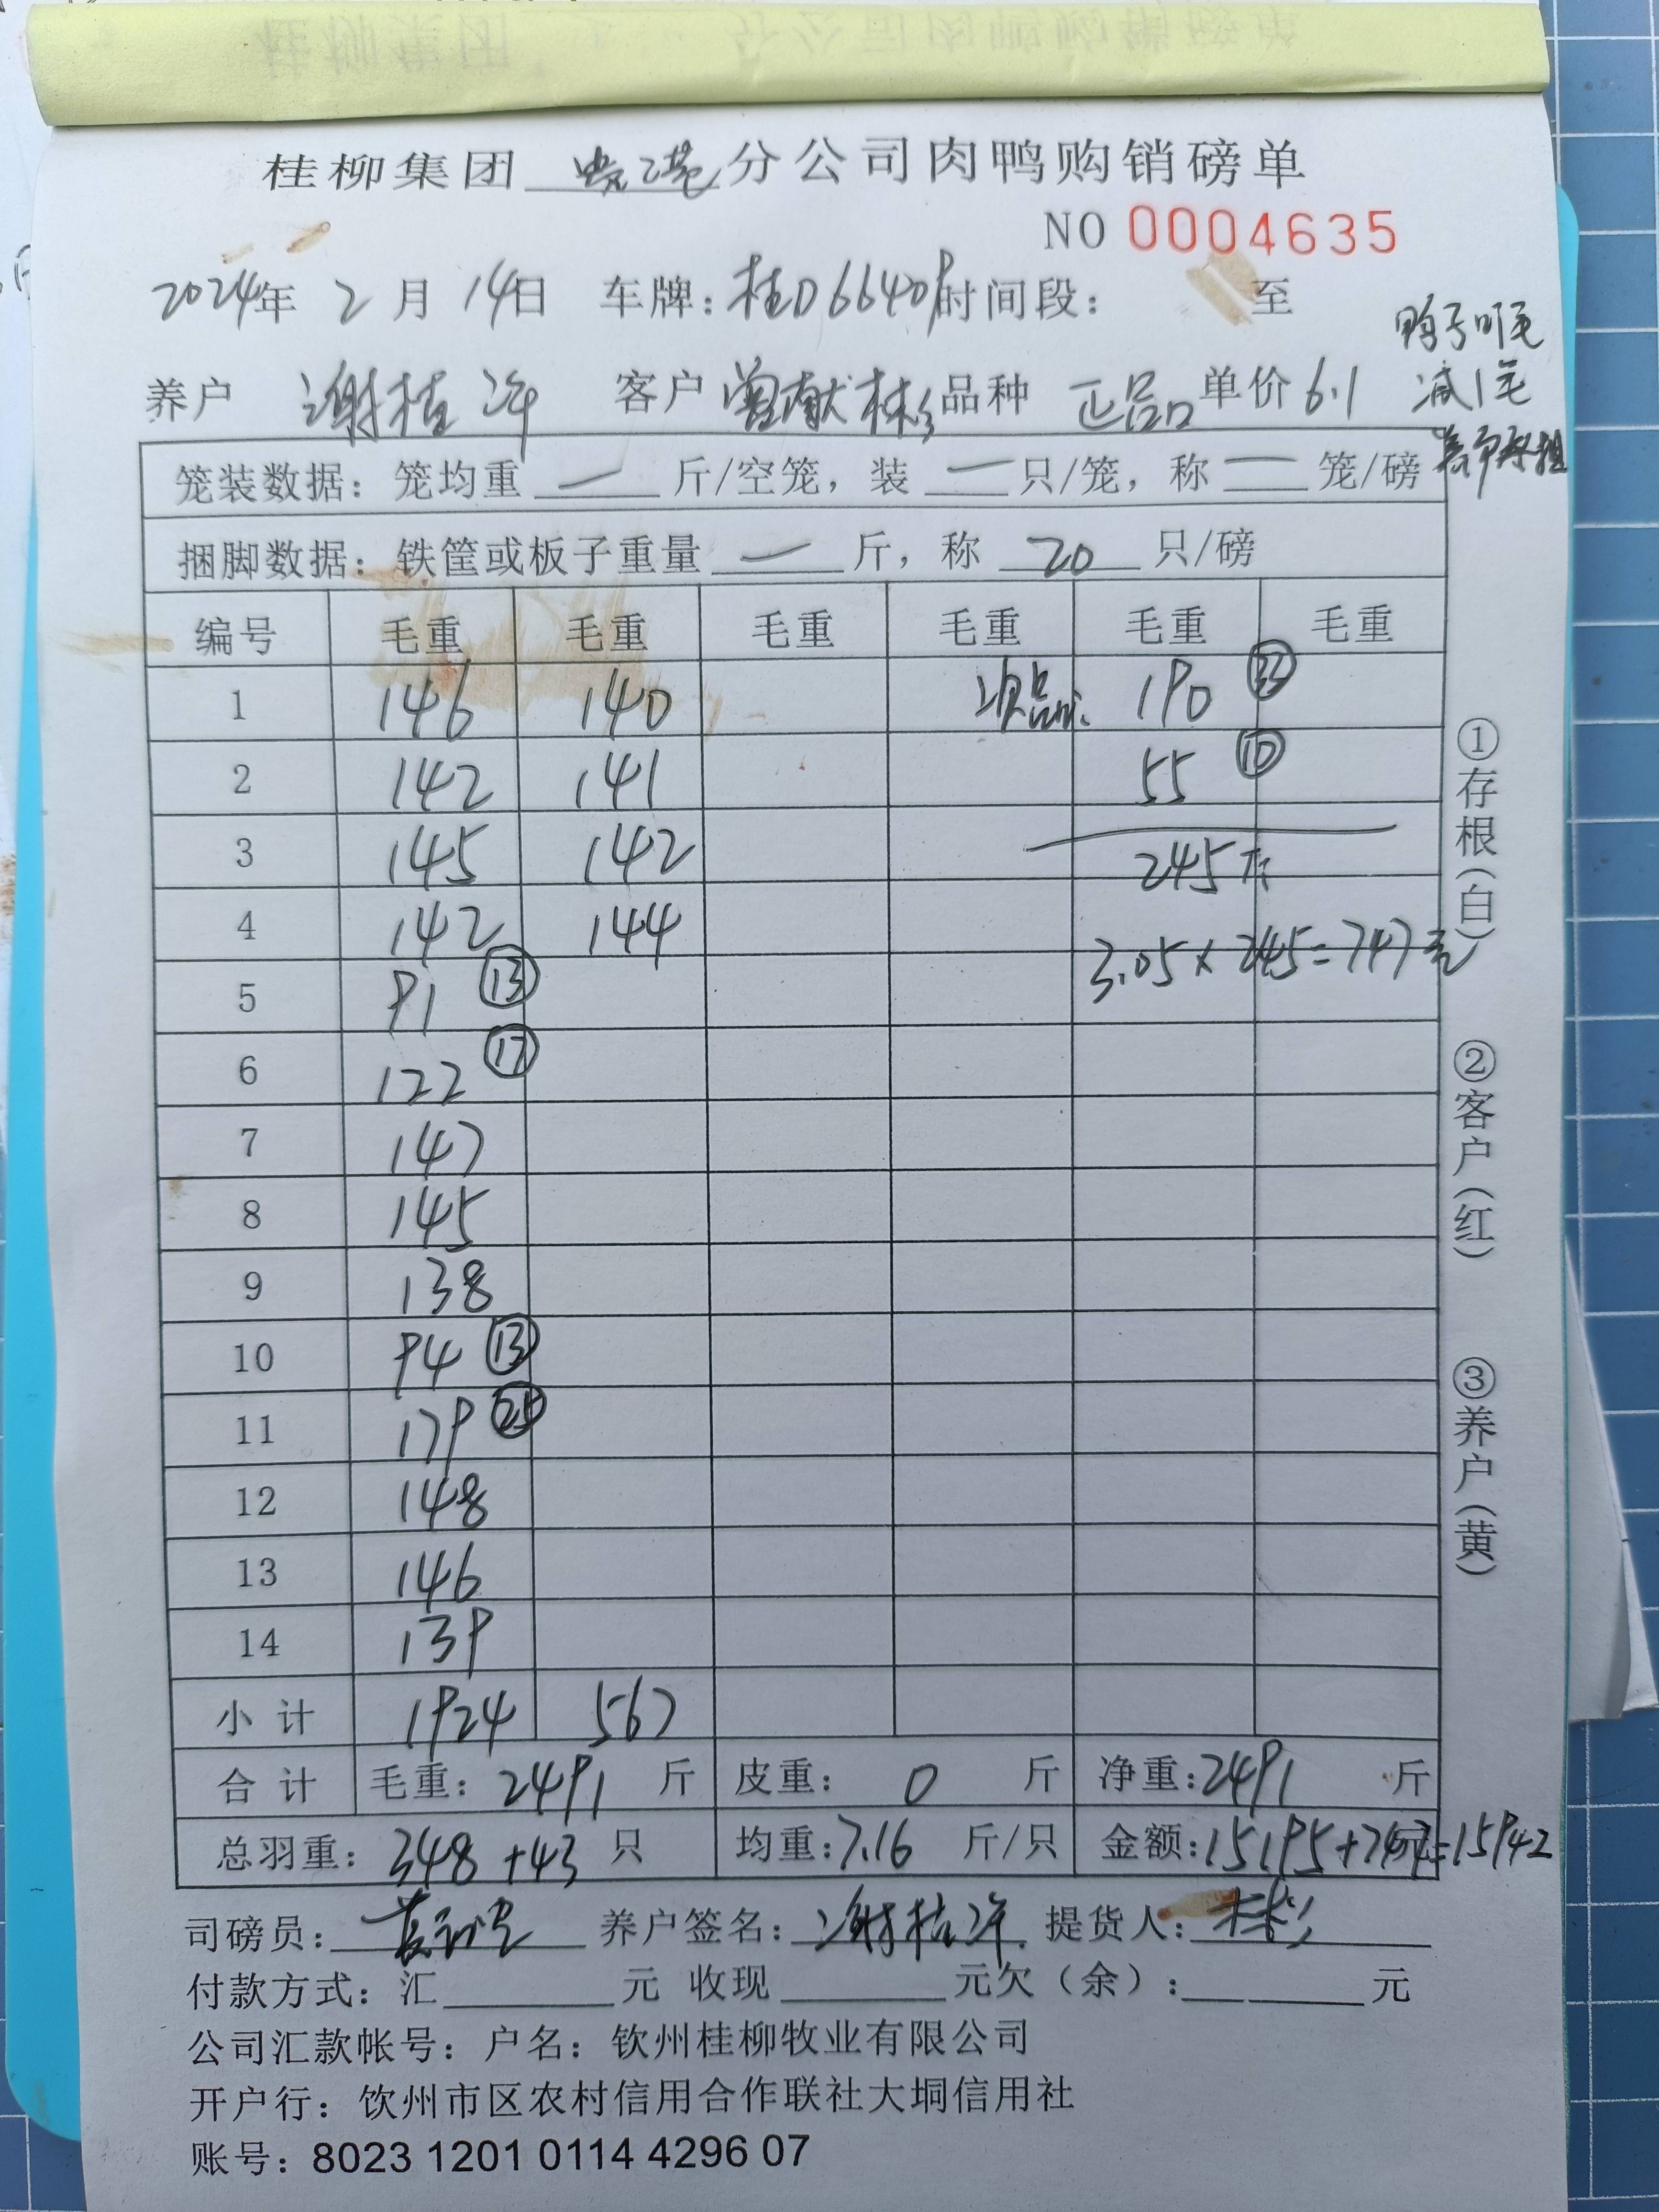 桂柳集团 贵港 分公司肉鸭购销磅单
NO 0004635
2024年 2 月 14日 车牌：桂D6640P 时间段： 至
鸭子叼毛
减1毛
养户承担
养户 谢桂年 客户 曾献彬 品种 正品 单价 6.1
笼装数据：笼均重 — 斤/空笼，装 — 只/笼，称 — 笼/磅
捆脚数据：铁筐或板子重量 — 斤，称 20 只/磅
编号 毛重 毛重 毛重 毛重 毛重 毛重
1 146 140 次品 190 ㉝
2 142 141 55 ⑩
3 145 142 245斤
4 142 144 3.05×245=747元
5 91 ⑬
6 122 ⑰
7 147
8 145
9 138
10 94 ⑬
11 179 ㉕
12 148
13 146
14 139
小计 1924 567
合计 毛重：2491 斤 皮重：0 斤 净重：2491 斤
总羽重：348+43 只 均重：7.16 斤/只 金额：15195+747元=15942
司磅员： 养户签名：谢桂年 提货人：
付款方式：汇 元 收现 元欠（余）： 元
公司汇款帐号：户名：钦州桂柳牧业有限公司
开户行：钦州市区农村信用合作联社大垌信用社
账号：8023 1201 0114 4296 07
①存根（白）
②客户（红）
③养户（黄）